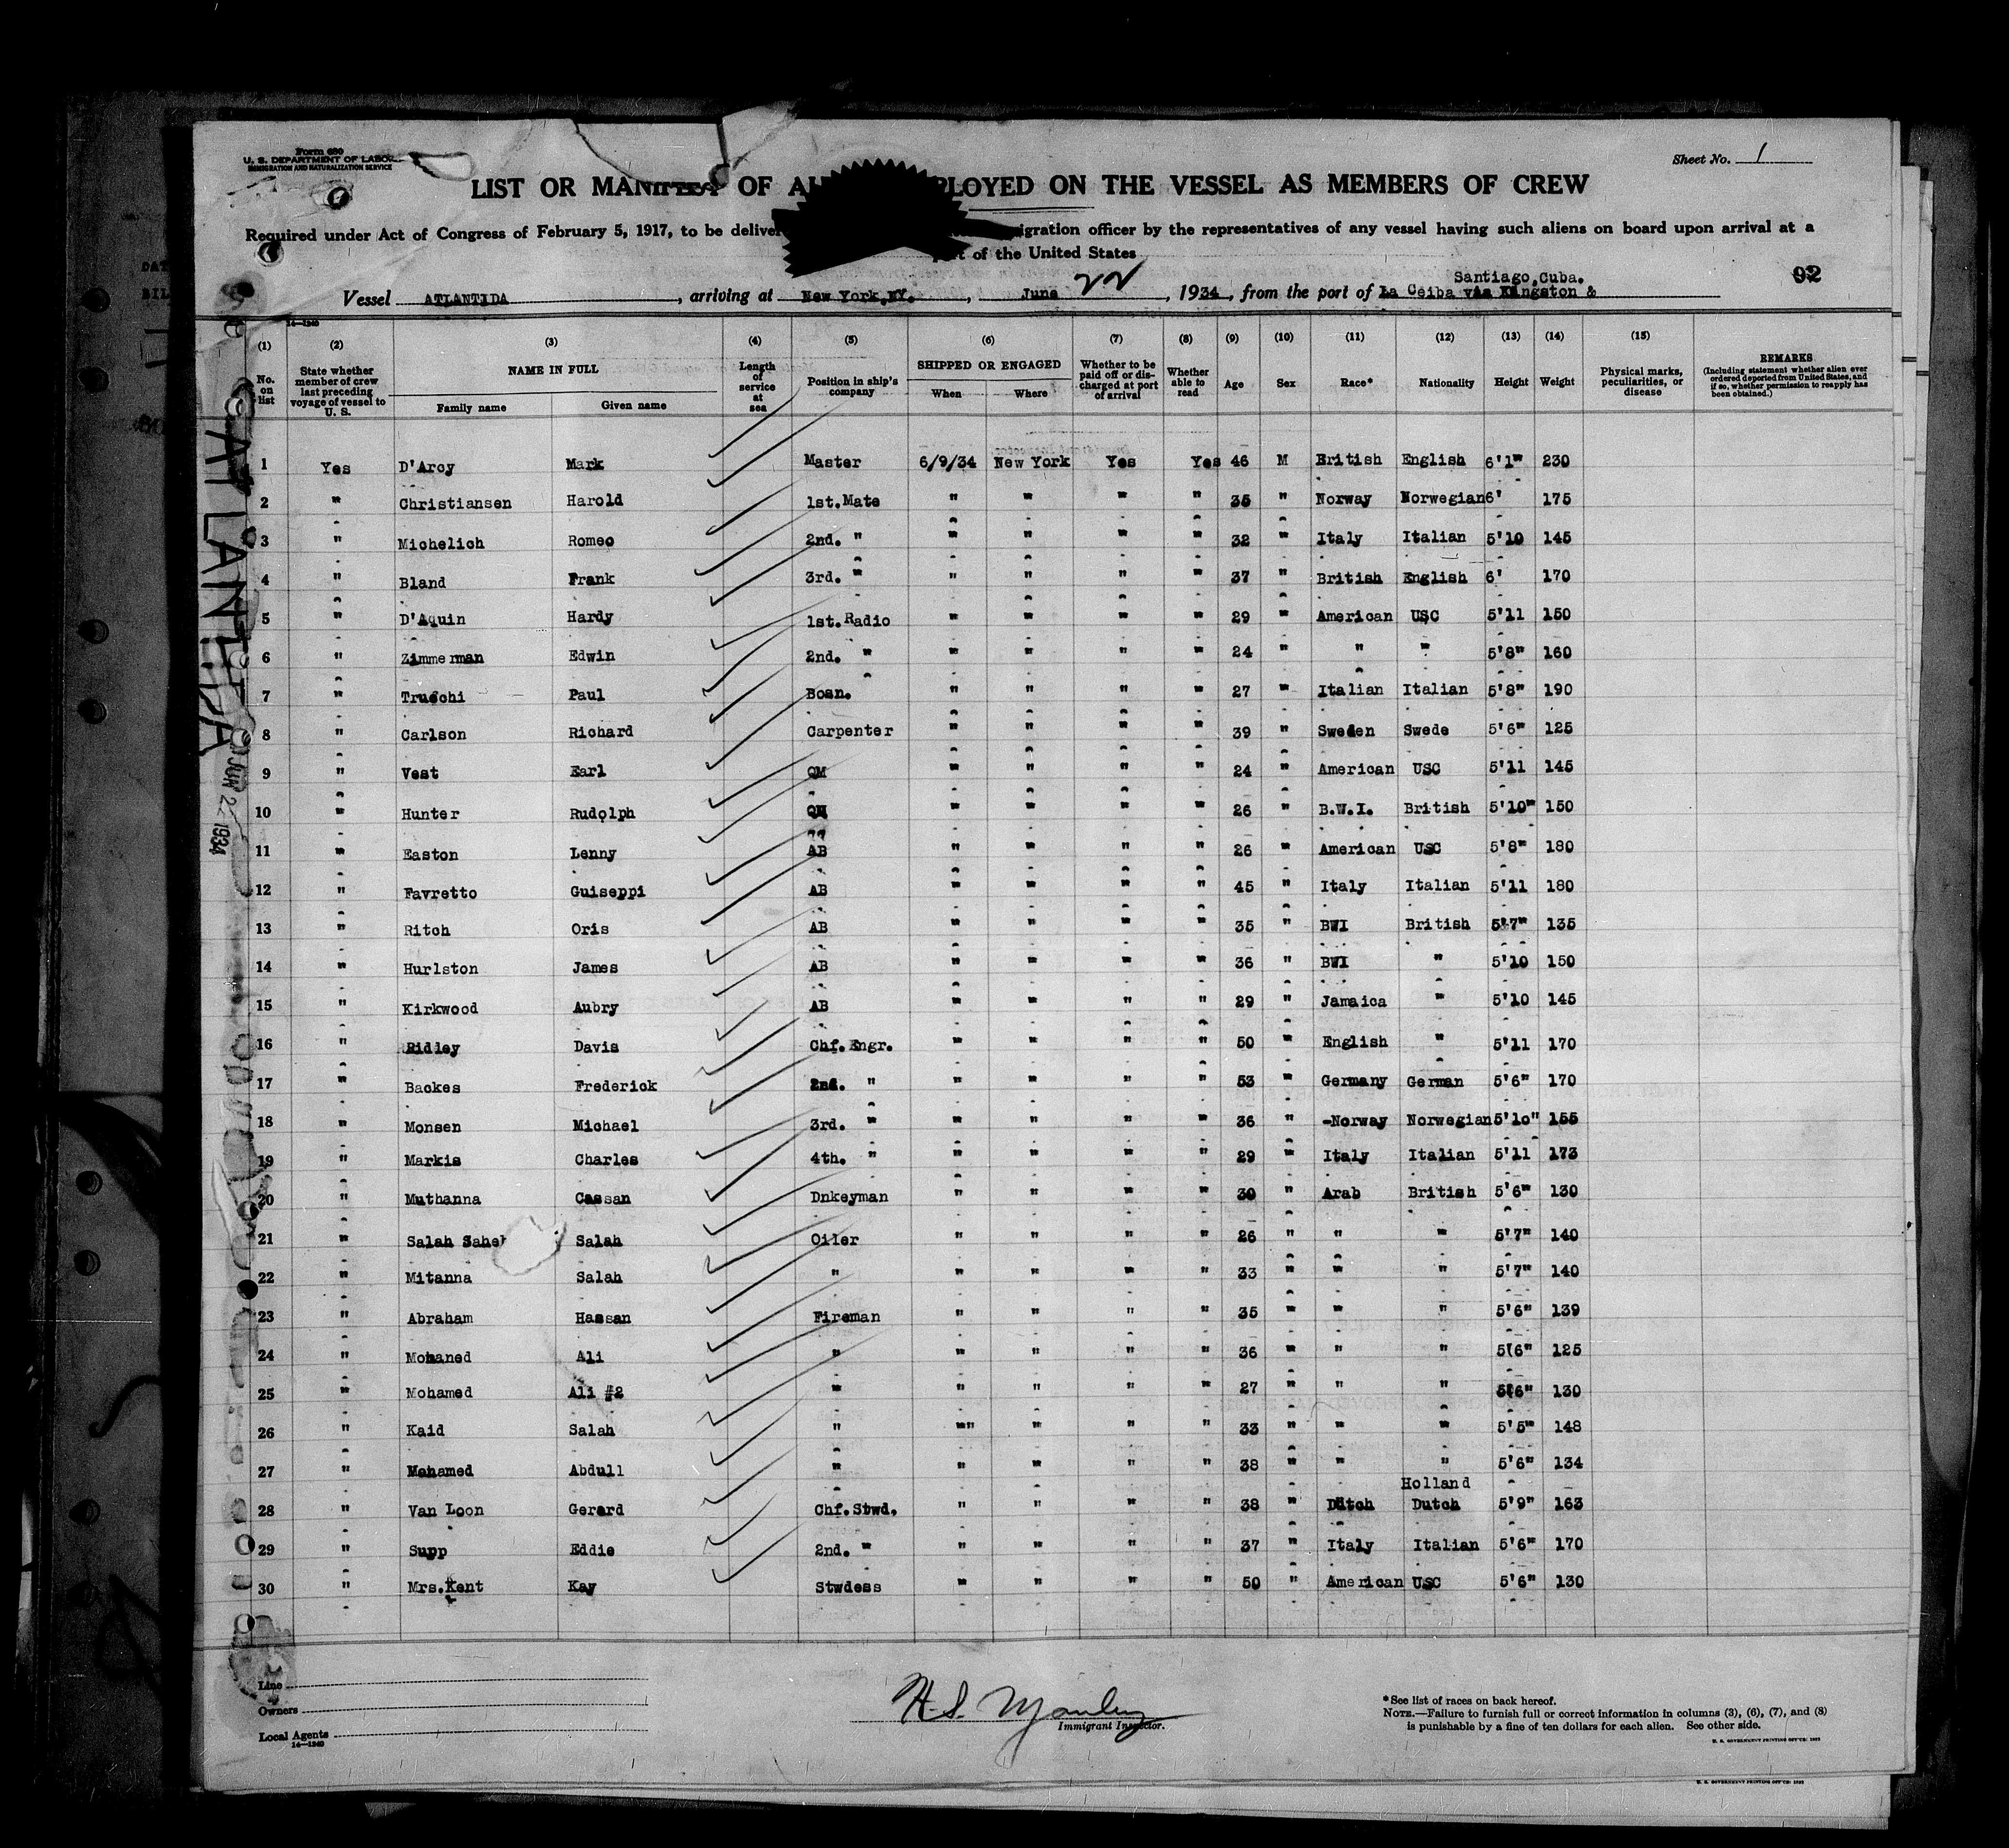 Form 680
U. S. DEPARTMENT OF LABOR
IMMIGRATION AND NATURALIZATION SERVICE
Sheet No. 1
LIST OR MANIFEST OF AL PLOYED ON THE VESSEL AS MEMBERS OF CREW
Required under Act of Congress of February 5, 1917, to be deliver igration officer by the representatives of any vessel having such aliens on board upon arrival at a
port of the United States
Santiago,Cuba.
92
Vessel ATLANTIDA, arriving at New York,NY., June 22, 1934, from the port of La Ceiba via Kingston &
14-1240
(1) (2) (3) (4) (5) (6) (7) (8) (9) (10) (11) (12) (13) (14) (15)
No. on list
State whether member of crew last preceding voyage of vessel to U. S.
NAME IN FULL
Family name Given name
Length of service at sea
Position in ship's company
SHIPPED OR ENGAGED
When Where
Whether to be paid off or discharged at port of arrival
Whether able to read
Age Sex Race* Nationality Height Weight
Physical marks, peculiarities, or disease
REMARKS
(Including statement whether alien ever ordered deported from United States, and if so, whether permission to reapply has been obtained.)
1 Yes D'Arcy Mark Master 6/9/34 New York Yes Yes 46 M British English 6'1" 230
2 " Christiansen Harold 1st.Mate " " " " 35 " Norway Norwegian 6' 175
3 " Michelich Romeo 2nd. " " " " " 32 " Italy Italian 5'10 145
4 " Bland Frank 3rd. " " " " " 37 " British English 6' 170
5 " D'Aquin Hardy 1st.Radio " " " " 29 " American USC 5'11 150
6 " Zimmerman Edwin 2nd. " " " " " 24 " " " 5'8" 160
7 " Truschi Paul Bosn. " " " " 27 " Italian Italian 5'8" 190
8 " Carlson Richard Carpenter " " " " 39 " Sweden Swede 5'6" 125
9 " Vest Earl QM " " " " 24 " American USC 5'11 145
10 " Hunter Rudolph QM " " " " 26 " B.W.I. British 5'10" 150
11 " Easton Lenny AB " " " " 26 " American USC 5'8" 180
12 " Favretto Guiseppi AB " " " " 45 " Italy Italian 5'11 180
13 " Ritch Oris AB " " " " 35 " BWI British 5'7" 135
14 " Hurlston James AB " " " " 36 " BWI " 5'10 150
15 " Kirkwood Aubry AB " " " " 29 " Jamaica " 5'10 145
16 " Ridley Davis Chf.Engr. " " " " 50 " English " 5'11 170
17 " Backes Frederick 2nd. " " " " " 53 " Germany German 5'6" 170
18 " Monsen Michael 3rd. " " " " " 36 " -Norway Norwegian 5'10" 155
19 " Markis Charles 4th. " " " " " 29 " Italy Italian 5'11 173
20 " Muthanna Cassan Dnkeyman " " " " 30 " Arab British 5'6" 130
21 " Salah Saheb Salah Oiler " " " " 26 " " " 5'7" 140
22 " Mitanna Salah " " " " " 33 " " " 5'7" 140
23 " Abraham Hassan Fireman " " " " 35 " " " 5'6" 139
24 " Mohaned Ali " " " " " 36 " " " 5'6" 125
25 " Mohamed Ali #2 " " " " " 27 " " " 5'6" 130
26 " Kaid Salah " "" " " " 33 " " " 5'5" 148
27 " Mohamed Abdull " " " " " 38 " " " 5'6" 134
Holland
28 " Van Loon Gerard Chf.Stwd. " " " " 38 " Dutch Dutch 5'9" 163
29 " Supp Eddie 2nd. " " " " " 37 " Italy Italian 5'6" 170
30 " Mrs.Kent Kay Stwdess " " " " 50 " American USC 5'6" 130
ATLANTIDA
JUN 22 1934
Line
Owners
Local Agents
14-1240
H. S. Manley
Immigrant Inspector.
*See list of races on back hereof.
NOTE.—Failure to furnish full or correct information in columns (3), (6), (7), and (8)
is punishable by a fine of ten dollars for each alien. See other side.
U. S. GOVERNMENT PRINTING OFFICE: 1932
U. S. GOVERNMENT PRINTING OFFICE: 1932